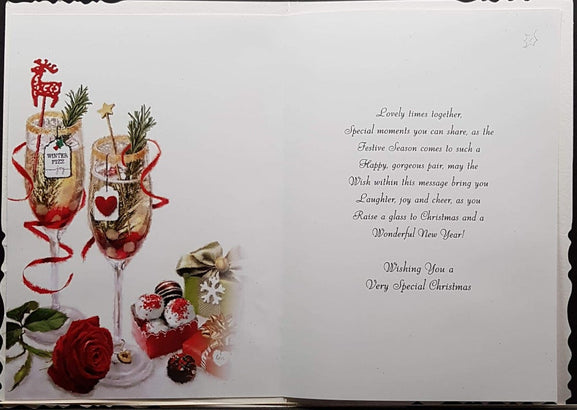 WINTER
FIZZ
Lovely times together,
Special moments you can share, as the
Festive Season comes to such a
Happy, gorgeous pair, may the
Wish within this message bring you
Laughter, joy and cheer, as you
Raise a glass to Christmas and a
Wonderful New Year!
Wishing You a
Very Special Christmas